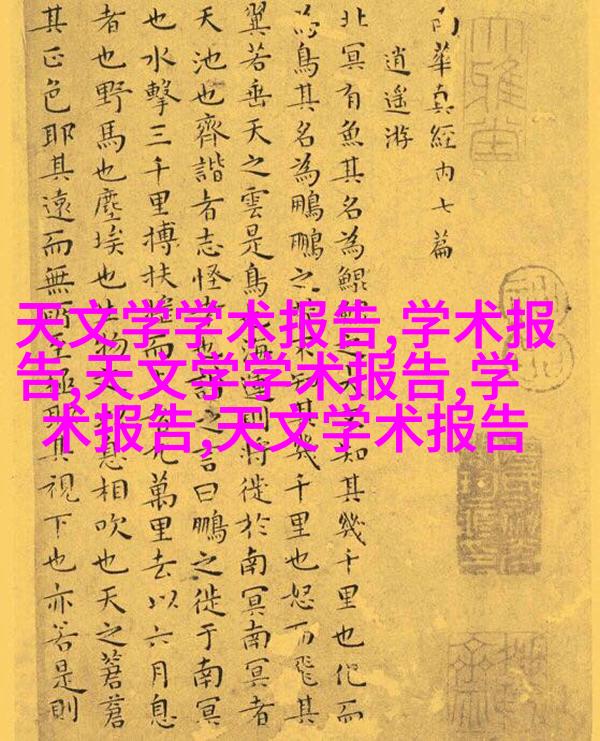 南華真經内七篇
逍遥游
北冥有魚其名為鯤知其幾千里也化而
為鳥其名為鵬鵬之其幾千里也怒而飛其
翼若垂天之雲是鳥也海運則將徙於南冥南冥者
天池也齊諧者志怪者也諧之言曰鵬之徙于南冥
也水擊三千里摶扶搖而九萬里去以六月息
者也野馬也塵埃也物息相吹也天之蒼蒼
其正色耶其遠而無所至極其視下也亦若是則
天文学学术报告,学术报
告,天文学学术报告,学
术报告,天文学术报告